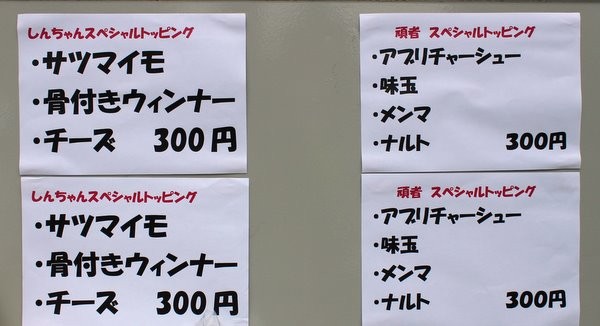 しんちゃんスペシャルトッピング
・サツマイモ
・骨付きウィンナー
・チーズ 300円
頑者 スペシャルトッピング
・アブリチャーシュー
・味玉
・メンマ
・ナルト 300円
しんちゃんスペシャルトッピング
・サツマイモ
・骨付きウィンナー
・チーズ 300円
頑者 スペシャルトッピング
・アブリチャーシュー
・味玉
・メンマ
・ナルト 300円